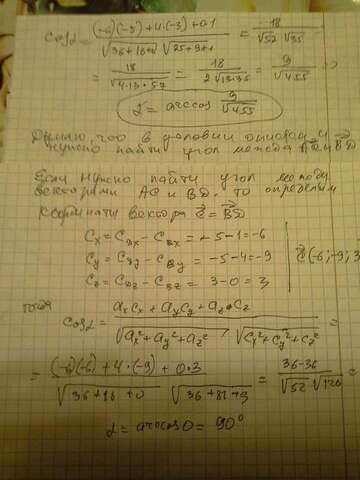 cosα = ((-6)(-5)+4·(-3)+0·1)/(√(36+16+0) √(25+9+1)) = 18/(√52 √35) =
= 18/√(4·13·57) = 18/(2√(13·35)) = 9/√455 ⇒
α = arccos 9/√455
Думаю, что в условии ошибка и
нужно найти угол между AC и BD
Если нужно найти угол между
векторами AC и BD, то определим
координаты вектора c̄ = BD
Cx = CDx − CBx = -5-1=-6
Cy = CDy − CBy = -5-4=-9
Cz = CDz − CBz = 3-0=3
c̄(-6;-9;3
тогда
cosα = (axcx + aycy + az·cz)/(√(ax²+ay²+az²) · √(cx²+cy²+cz²) =
= ((-6)(-6)+4·(-9)+0·3)/(√(36+16+0) √(36+81+9)) = (36-36)/(√52 √126) =
α = arccos0 = 90°